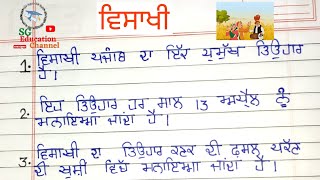 SG
Education
Channel
ਵਿਸਾਖੀ
1. ਵਿਸਾਖੀ ਪੰਜਾਬ ਦਾ ਇੱਕ ਪ੍ਰਮੁੱਖ ਤਿਉਹਾਰ
ਹੈ।
2. ਇਹ ਤਿਉਹਾਰ ਹਰ ਸਾਲ 13 ਅਪ੍ਰੈਲ ਨੂੰ
ਮਨਾਇਆ ਜਾਂਦਾ ਹੈ।
3. ਵਿਸਾਖੀ ਦਾ ਤਿਉਹਾਰ ਕਣਕ ਦੀ ਫ਼ਸਲ ਪੱਕਣ
ਦੀ ਖੁਸ਼ੀ ਵਿੱਚ ਮਨਾਇਆ ਜਾਂਦਾ ਹੈ।